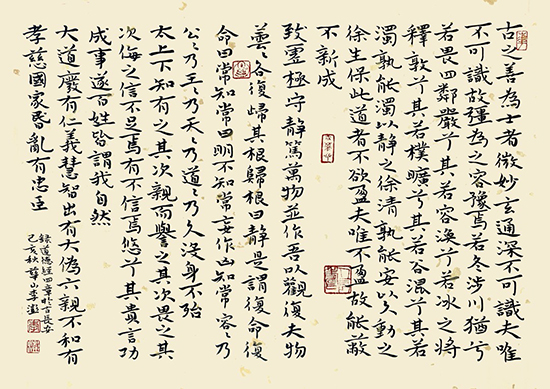 古之善為士者微妙玄通深不可識夫唯
不可識故彊為之容豫焉若冬涉川猶兮
若畏四鄰嚴兮其若容渙兮若冰之將
釋敦兮其若樸曠兮其若谷混兮其若
濁孰能濁以靜之徐清孰能安以久動之
徐生保此道者不欲盈夫唯不盈故能蔽
不新成
致虛極守靜篤萬物並作吾以觀復夫物
芸々各復歸其根歸根曰靜是謂復命復
命曰常知常曰明不知常妄作凶知常容乃
公々乃王々乃天々乃道々乃久沒身不殆
太上下知有之其次親而譽之其次畏之其
次侮之信不足焉有不信焉悠兮其貴言功
成事遂百姓皆謂我自然
大道廢有仁義慧智出有大偽六親不和有
孝慈國家昏亂有忠臣
錄道德經四章於古長安
己亥秋華山李